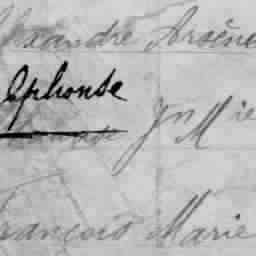 lexandre Arsène
lphonse
Jn Mie
rançois Marie